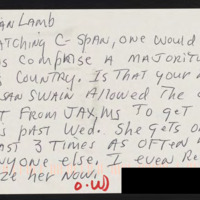 AN LAMB
ATCHING C-SPAN, ONE WOULD
S COMPRISE A MAJORITY
S COUNTRY. IS THAT YOUR
SAN SWAIN ALLOWED THE
T FROM JAX, MS TO GET
S PAST WED. SHE GETS O
AST 3 TIMES AS OFTEN
YONE ELSE. I EVEN RE
ZE HER NOW.
O.W)